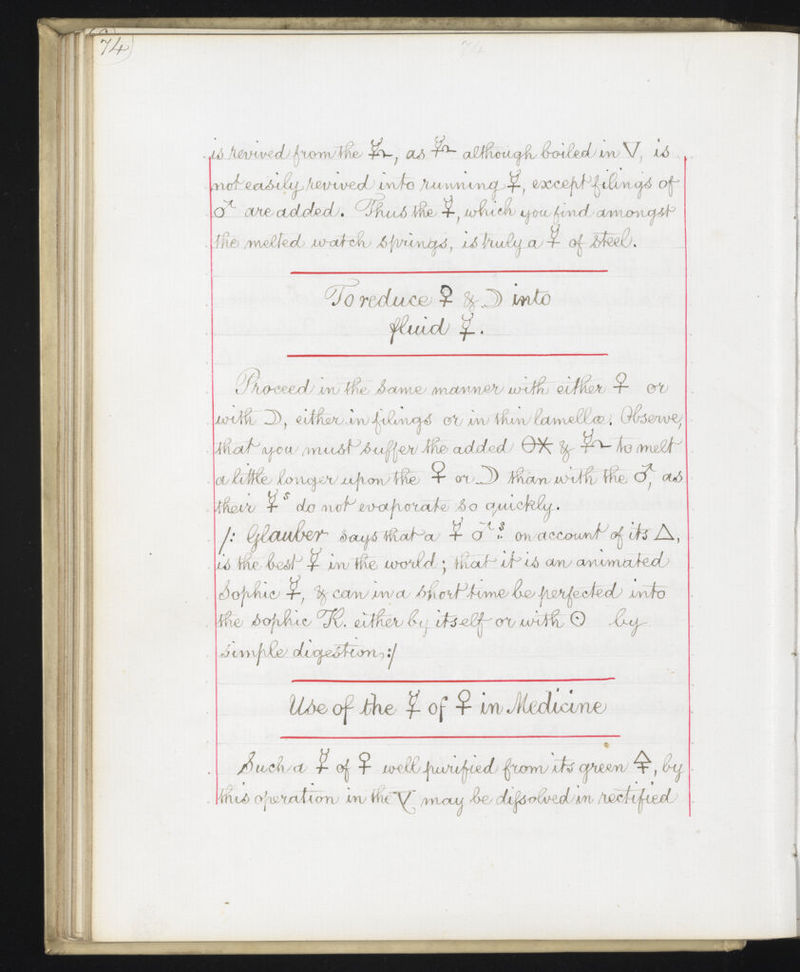 74
is revived from the ☿︎♎︎, as ☿♎︎ although boiled in ▽, is
not easily revived into running ☿, except filings of
♂ are added. Thus the ☿, which you find amongst
the melted watch springs, is truly a ☿ of Steel.
To reduce ♀ & ☽ into
fluid ☿.
Proceed in the same manner with either ♀ or
with ☽, either in filings or in thin lamellæ; Observe,
that you must suffer the added & to melt
a little longer upon the ♀ or ☽ than with the ♂, as
their ☿s do not evaporate so quickly.
/: Glauber says that a ☿ ♂ on account of its △,
is the best ☿ in the world; that it is an animated
Sophic ☿, & can in a short time be perfected into
the sophic K. either by itself or with ☉ by
simple digestion, :/
Use of the ☿ of ♀ in Medicine
Such a ☿ of ♀ well purified from its green 🜍, by
this operation in the ▽ may be difsolved in rectified